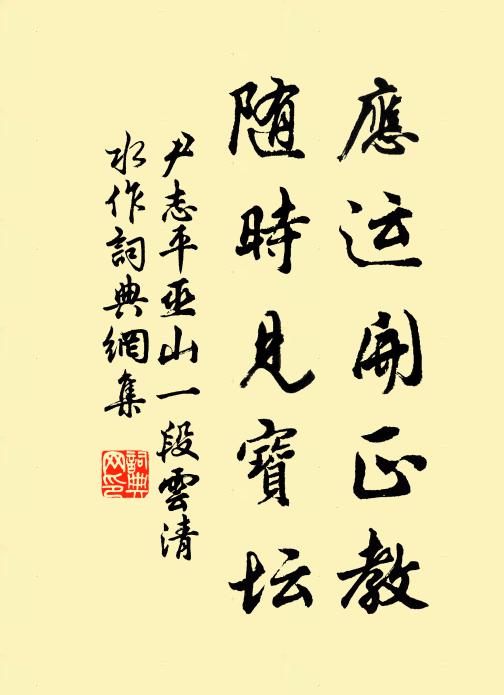 應运開正教
随時見寶坛
尹志平巫山一段雲清
水作詞典網集
詞典
网印